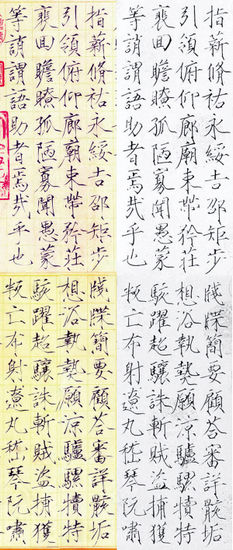 指薪脩祜永綏吉邵矩步
引領俯仰廊廟束帶矜莊
裵回瞻眺孤陋寡聞愚蒙
等誚謂語助者焉哉乎也
指薪脩祜永綏吉邵矩步
引領俯仰廊廟束帶矜莊
裵回瞻眺孤陋寡聞愚蒙
等誚謂語助者焉哉乎也
牋牒簡要顧答審詳骸垢
想浴執熱願凉驢騾犢特
駭躍超驤誅斬賊盜捕獲
叛亡布射遼丸嵇琴阮嘯
牋牒簡要顧答審詳骸垢
想浴執熱願凉驢騾犢特
駭躍超驤誅斬賊盜捕獲
叛亡布射遼丸嵇琴阮嘯